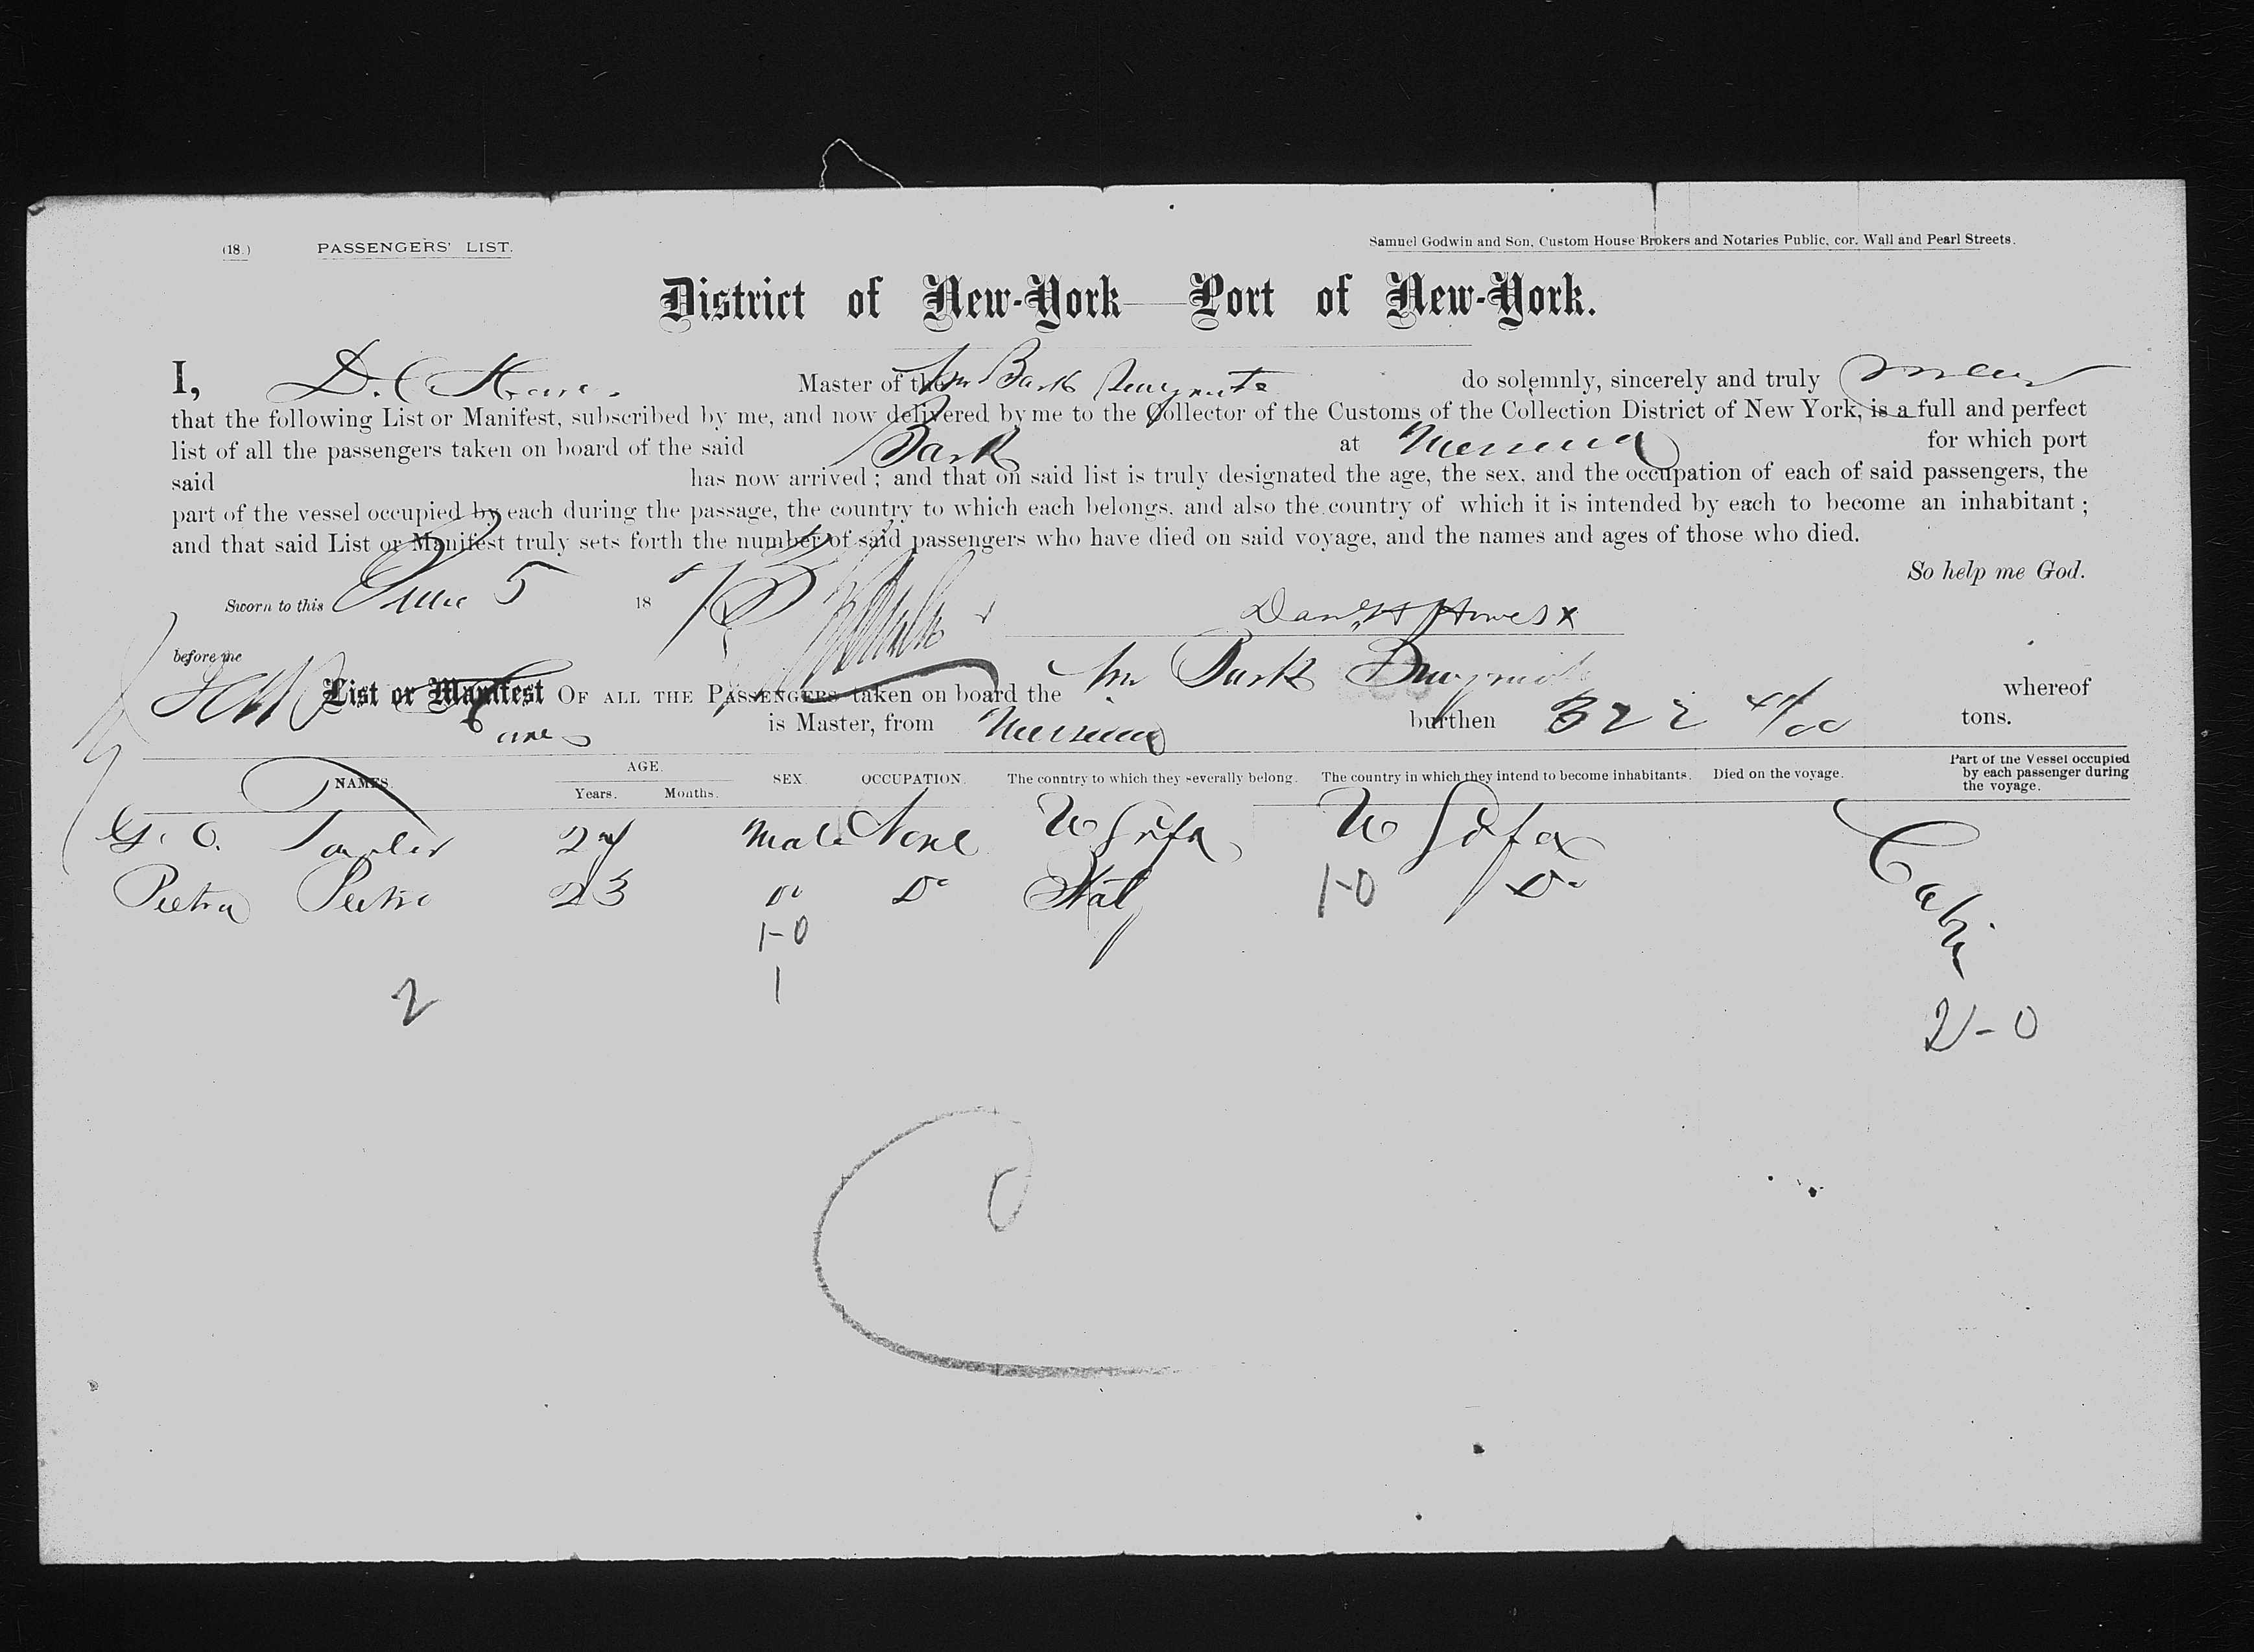 (18.) PASSENGERS' LIST. Samuel Godwin and Son, Custom House Brokers and Notaries Public, cor. Wall and Pearl Streets.
District of New-York—Port of New-York.
I, D. Master of the Am Bark do solemnly, sincerely and truly swear
that the following List or Manifest, subscribed by me, and now delivered by me to the Collector of the Customs of the Collection District of New York, is a full and perfect
list of all the passengers taken on board of the said Bark at Messina for which port
said has now arrived ; and that on said list is truly designated the age, the sex, and the occupation of each of said passengers, the
part of the vessel occupied by each during the passage, the country to which each belongs, and also the country of which it is intended by each to become an inhabitant ;
and that said List or Manifest truly sets forth the number of said passengers who have died on said voyage, and the names and ages of those who died.
So help me God.
Sworn to this June 5 187
Danl H Howes x
before me
List or Manifest OF ALL THE PASSENGERS taken on board the Am Bark whereof
is Master, from Messina burthen 322 tons.
NAMES. AGE. Years. Months. SEX. OCCUPATION. The country to which they severally belong. The country in which they intend to become inhabitants. Died on the voyage. Part of the Vessel occupied by each passenger during the voyage.
G. O. Taylor 27 Male None U S of a U S of a Cabin
Pietra Pietro 23 Do Do Italy 1-0 Do
1-0
2 1
2-0
C